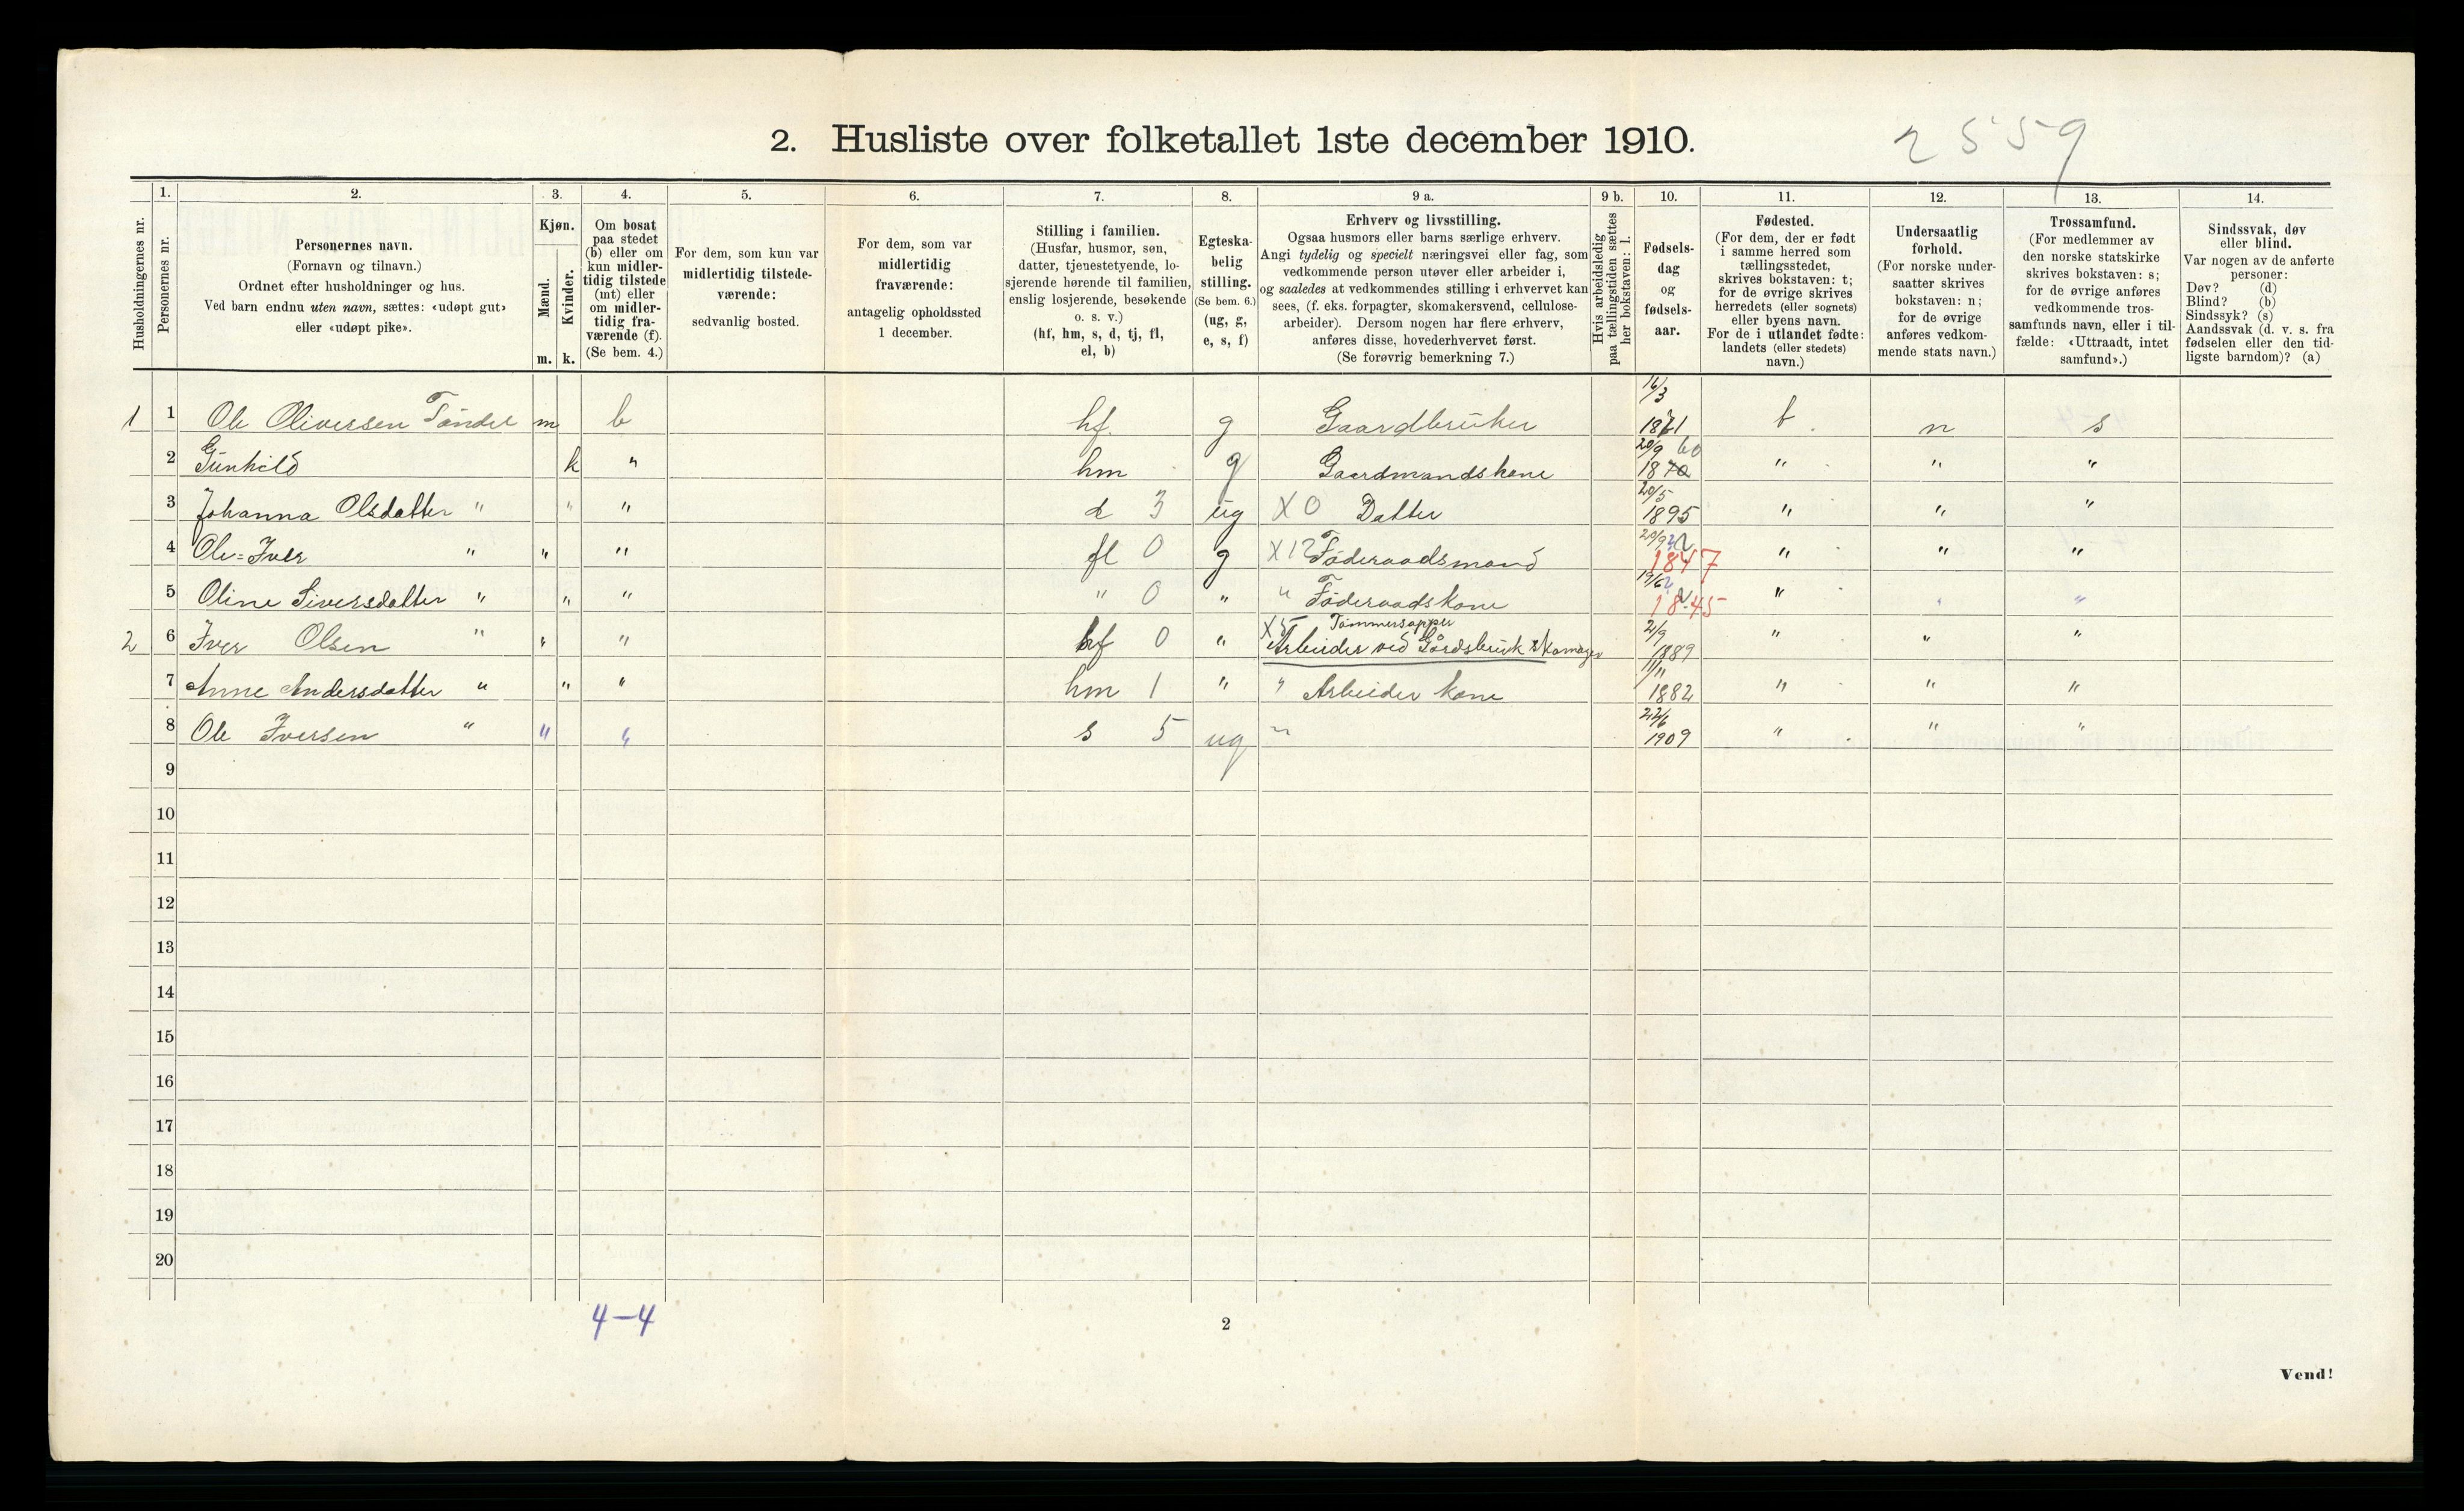 2. Husliste over folketallet 1ste december 1910.
2559
1. 2. 3. 4. 5. 6. 7. 8. 9 a. 9 b. 10. 11. 12. 13. 14.
Husholdningernes nr.
Personernes nr.
Personernes navn.
(Fornavn og tilnavn.)
Ordnet efter husholdninger og hus.
Ved barn endnu uten navn, sættes: «udøpt gut»
eller «udøpt pike».
Kjøn.
Mænd.
Kvinder.
m. k.
Om bosat
paa stedet
(b) eller om
kun midler-
tidig tilstede
(mt) eller
om midler-
tidig fra-
værende (f).
(Se bem. 4.)
For dem, som kun var
midlertidig tilstede-
værende:
sedvanlig bosted.
For dem, som var
midlertidig
fraværende:
antagelig opholdssted
1 december.
Stilling i familien.
(Husfar, husmor, søn,
datter, tjenestetyende, lo-
sjerende hørende til familien,
enslig losjerende, besøkende
o. s. v.)
(hf, hm, s, d, tj, fl,
el, b)
Egteska-
belig
stilling.
(Se bem. 6.)
(ug, g,
e, s, f)
Erhverv og livsstilling.
Ogsaa husmors eller barns særlige erhverv.
Angi tydelig og specielt næringsvei eller fag, som
vedkommende person utøver eller arbeider i,
og saaledes at vedkommendes stilling i erhvervet kan
sees, (f. eks. forpagter, skomakersvend, cellulose-
arbeider). Dersom nogen har flere erhverv,
anføres disse, hovederhvervet først.
(Se forøvrig bemerkning 7.)
Hvis arbeidsledig
paa tællingstiden sættes
her bokstaven: l.
Fødsels-
dag
og
fødsels-
aar.
Fødested.
(For dem, der er født
i samme herred som
tællingsstedet,
skrives bokstaven: t;
for de øvrige skrives
herredets (eller sognets)
eller byens navn.
For de i utlandet fødte:
landets (eller stedets)
navn.)
Undersaatlig
forhold.
(For norske under-
saatter skrives
bokstaven: n;
for de øvrige
anføres vedkom-
mende stats navn.)
Trossamfund.
(For medlemmer av
den norske statskirke
skrives bokstaven: s;
for de øvrige anføres
vedkommende tros-
samfunds navn, eller i til-
fælde: «Uttraadt, intet
samfund».)
Sindssvak, døv
eller blind.
Var nogen av de anførte
personer:
Døv? (d)
Blind? (b)
Sindssyk? (s)
Aandssvak (d. v. s. fra
fødselen eller den tid-
ligste barndom)? (a)
1 1 Ole Oliversen Tøndel m b hf. g Gaardbruker 16/3 1871 t n s
2 Gunhild k " hm g Gaardmandskone 20/9 60 1870 " " "
3 Johanna Olsdatter " " " d 3 ug X0 Datter 20/5 1895 " " "
4 Ole=Iver " " " fl 0 g X12 Føderaadsmand 20/9 1847 " " "
5 Oline Siversdatter " " " " 0 " " Føderaadskone 19/6 1845 " " "
Tømmersapper
2 6 Iver Olsen " " " hf 0 " X5 Arbeider ved Gårdsbruk skomager 2/9 1889 " " "
7 Anne Andersdatter " " " hm 1 " " Arbeider kone 11/11 1882 " " "
8 Ole Iversen " " " s 5 ug " 22/6 1909 " " "
9
10
11
12
13
14
15
16
17
18
19
20
4-4
2
Vend!